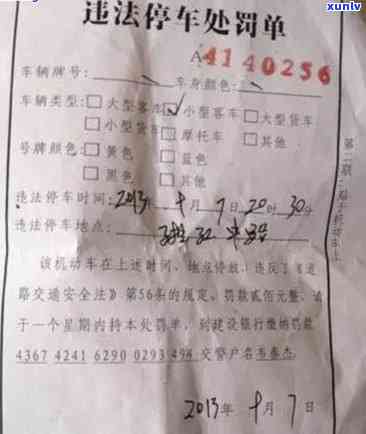 头条 @ xunlv
违法停车处罚单
A4140256
车辆牌号: 车身颜色:
车辆类型: 大型客车 小型客车 大型货车
小型货车 摩托车 其他
号牌颜色: 黄色 蓝色
黑色 其他
违法停车时间: 2013年 十月 7日 20时 30分
违法停车地点:
第二联 贴于机动车上
该机动车在上述时间、地点停放,违反了《道
路交通安全法》第56条的规定。罚款贰佰元整,请
于一个星期内持本处罚单,到建设银行缴纳罚款
4367 4241 6290 0293 498 交警户名韦泰杰
2013年 十月 7日